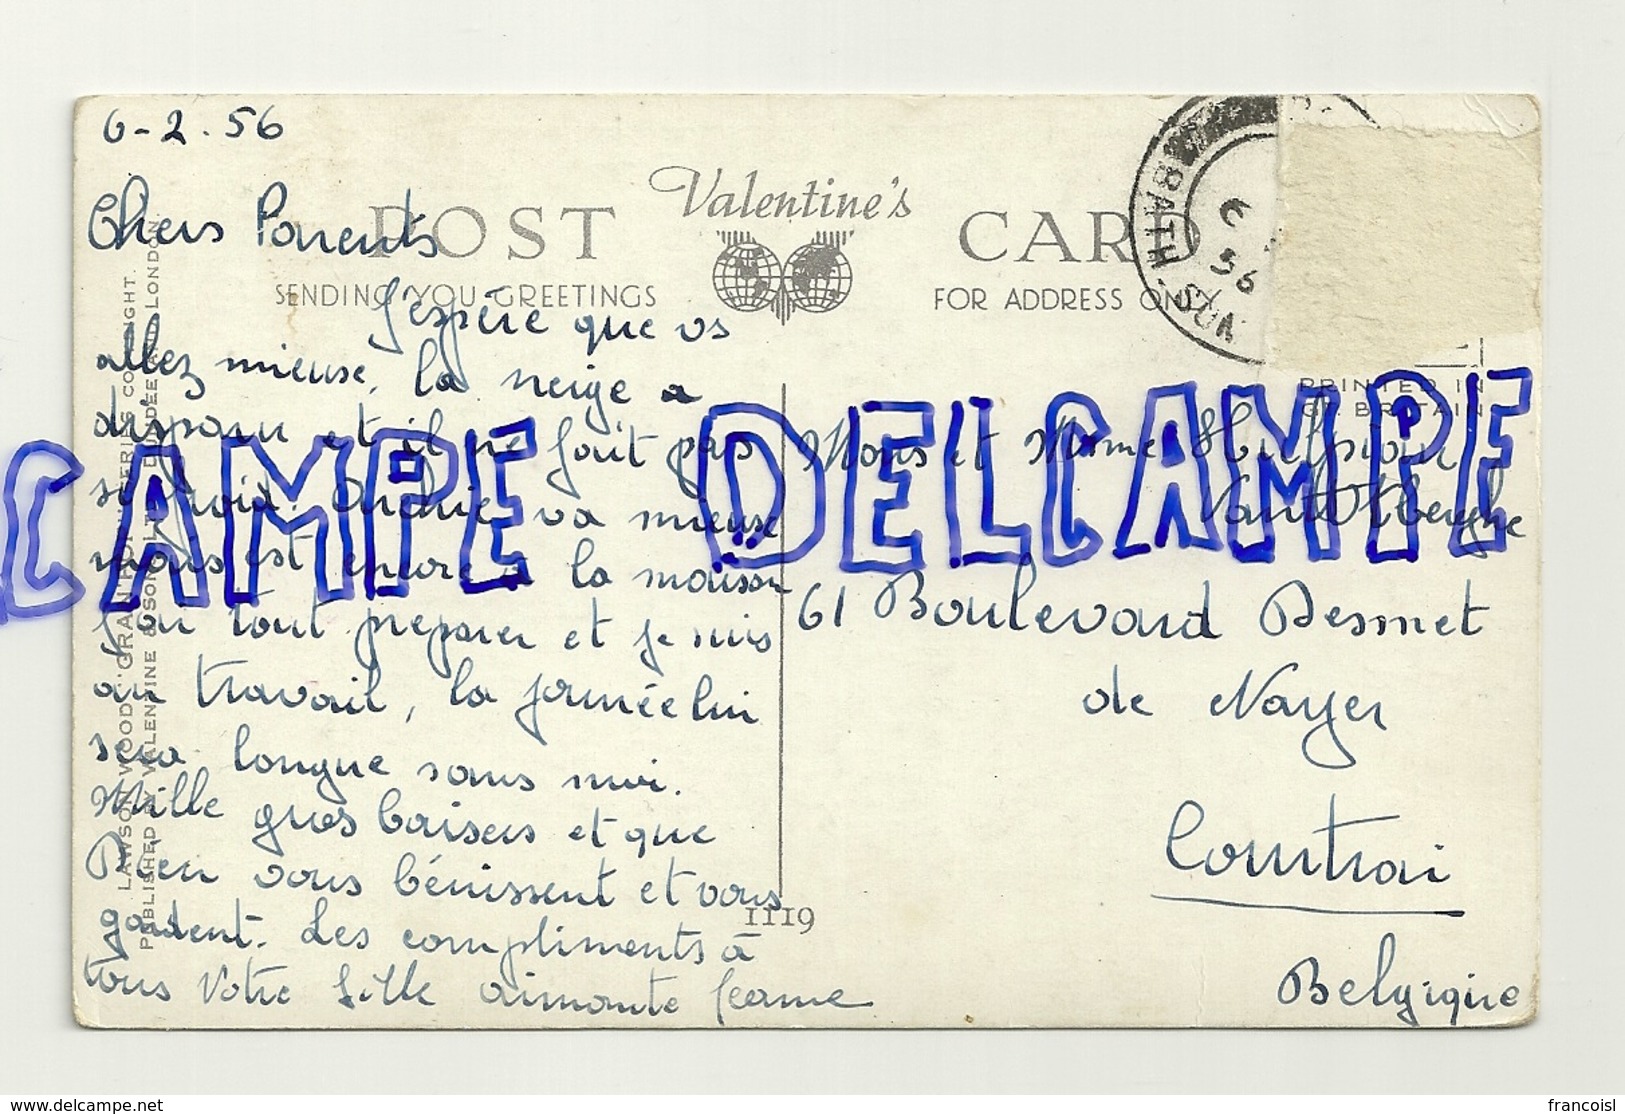 6-2.56
Chers Parents
J'espère que vs
allez mieuse, la neige a
disparu et il ne fait pas
si froid. Archie va mieuse
mais est encore à la maison
J'ai tout préparer et je suis
au travail, la journée lui
sera longue sans moi.
Mille gros baisers et que
Dieu vous bénissent et vous
gardent. Les compliments à
tous Votre fille aimante Jeanne
POST Valentine's CARD
SENDING YOU GREETINGS
FOR ADDRESS ONLY
BATH · SOM
6
56
PRINTED IN
GT. BRITAIN
Mons et Mme
61 Boulevard Desmet
de Nayer
Courtrai
Belgique
LAWSON WOOD: GRAN'POP SERIES COPYRIGHT.
PUBLISHED BY VALENTINE & SONS LTD. DUNDEE AND LONDON.
1119
CAMPE DELCAMPE
www.delcampe.net
francoisl